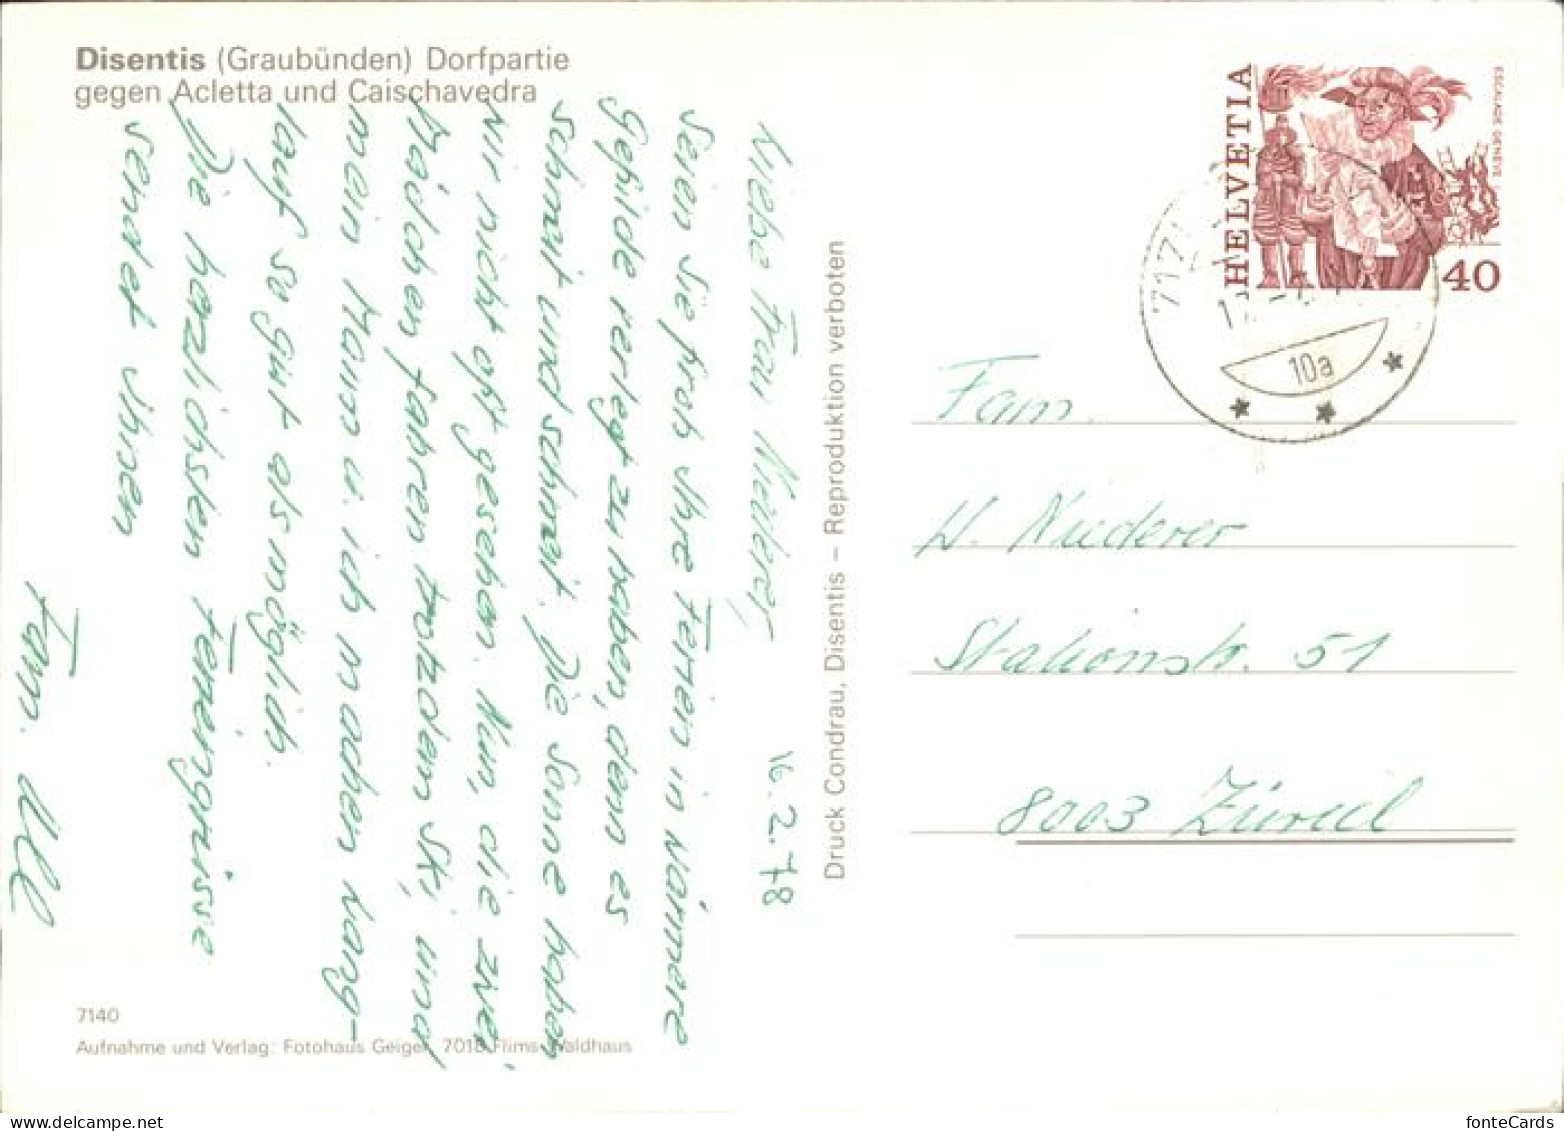 Disentis (Graubünden) Dorfpartie
gegen Acletta und Caischavedra
16.2.78
Liebe Frau
seien Sie froh Ihre Ferien in wärmere
Gefilde verlegt zu haben, denn es
schneit und schneit. Die Sonne haben
wir nicht oft gesehen. Nun, die zwei
Mädchen fahren trotzdem Ski, und
mein Mann u. ich machen Lang-
lauf so gut als möglich.
Die herzlichsten Feriengrüsse
sendet Ihnen
Fam.
7140
Aufnahme und Verlag: Fotohaus Geiger, 7018 Flims-Waldhaus
Druck Condrau, Disentis – Reproduktion verboten
HELVETIA
ESCALADE GENEVE
40
717
10a
Fam.
W.
Stationstr. 51
8003 Zürich
fonteCards